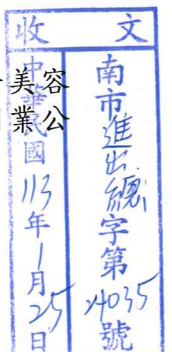 收文
南市進出總字第24035號
中華民國113年1月25日
美容
業公